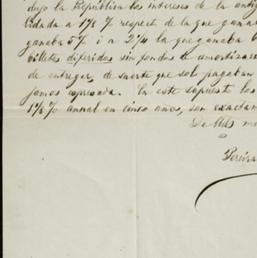 dujo la República los intereses de la antig
lidada a 1½ % respect. de la que gana
ganaba 5% i a 2¼ la que ganaba 6
billetes diferidos sin fondos de amortizacio
de entregar, de suerte que solo pagaban
jamos espresada. En este supuesto los
1½ % annal en cinco años, son exactam
De Ud. m
Pereira